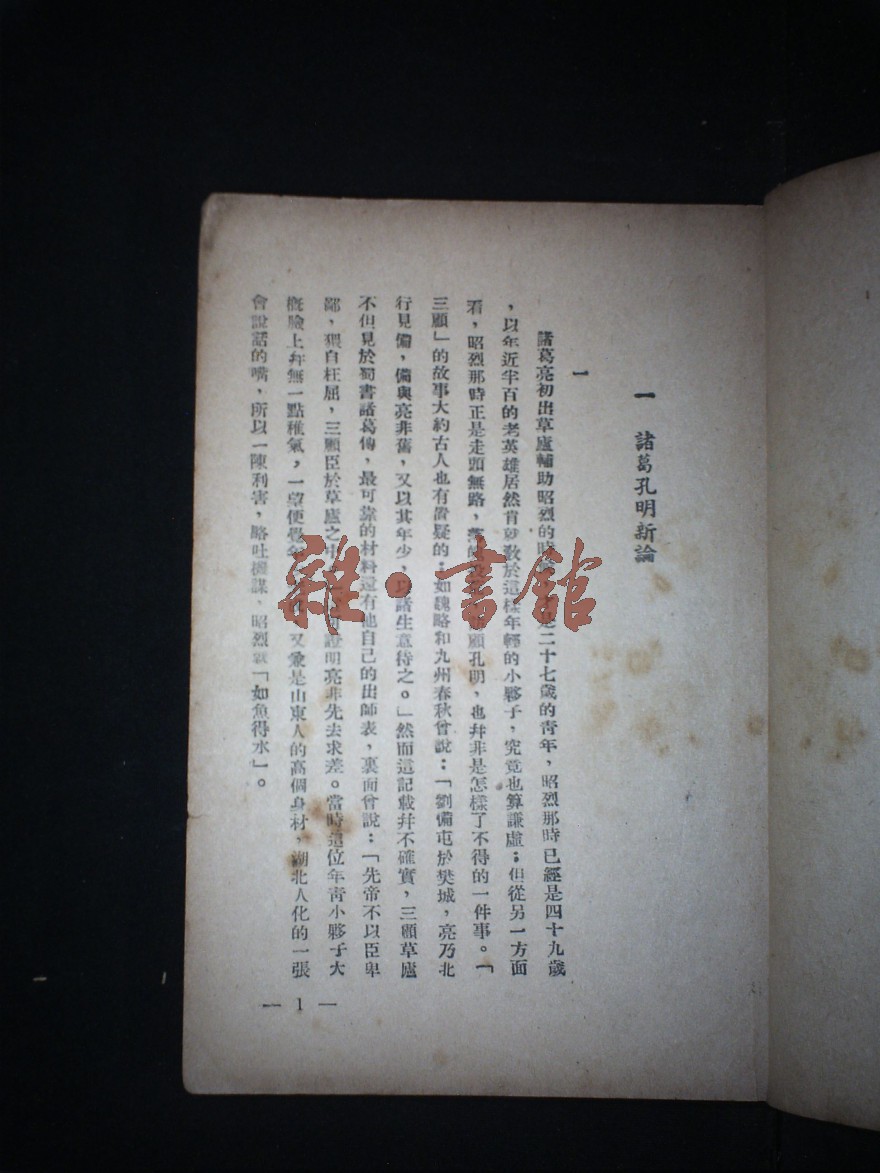 一 諸葛孔明新論
一
諸葛亮初出草廬輔助昭烈的時 是二十七歲的青年，昭烈那時已經是四十九歲
，以年近半百的老英雄居然肯 教於這樣年輕的小夥子，究竟也算謙虛；但從另一方面
看，昭烈那時正是走頭無路， 顧孔明，也幷非是怎樣了不得的一件事。「
三顧」的故事大約古人也有置疑的：如魏略和九州春秋曾說：「劉備屯於樊城，亮乃北
行見備，備與亮非舊，又以其年少，以諸生意待之。」然而這記載幷不確實，三顧草廬
不但見於蜀書諸葛傳，最可靠的材料還有他自己的出師表，裏面曾說：「先帝不以臣卑
鄙，猥自枉屈，三顧臣於草廬之中 證明亮非先去求差。當時這位年靑小夥子大
槪臉上幷無一點稚氣，一望便覺 又兼是山東人的高個身材，湖北人化的一張
會說話的嘴，所以一陳利害，略吐機謀，昭烈 「如魚得水」。
— 1 —
雜·書館